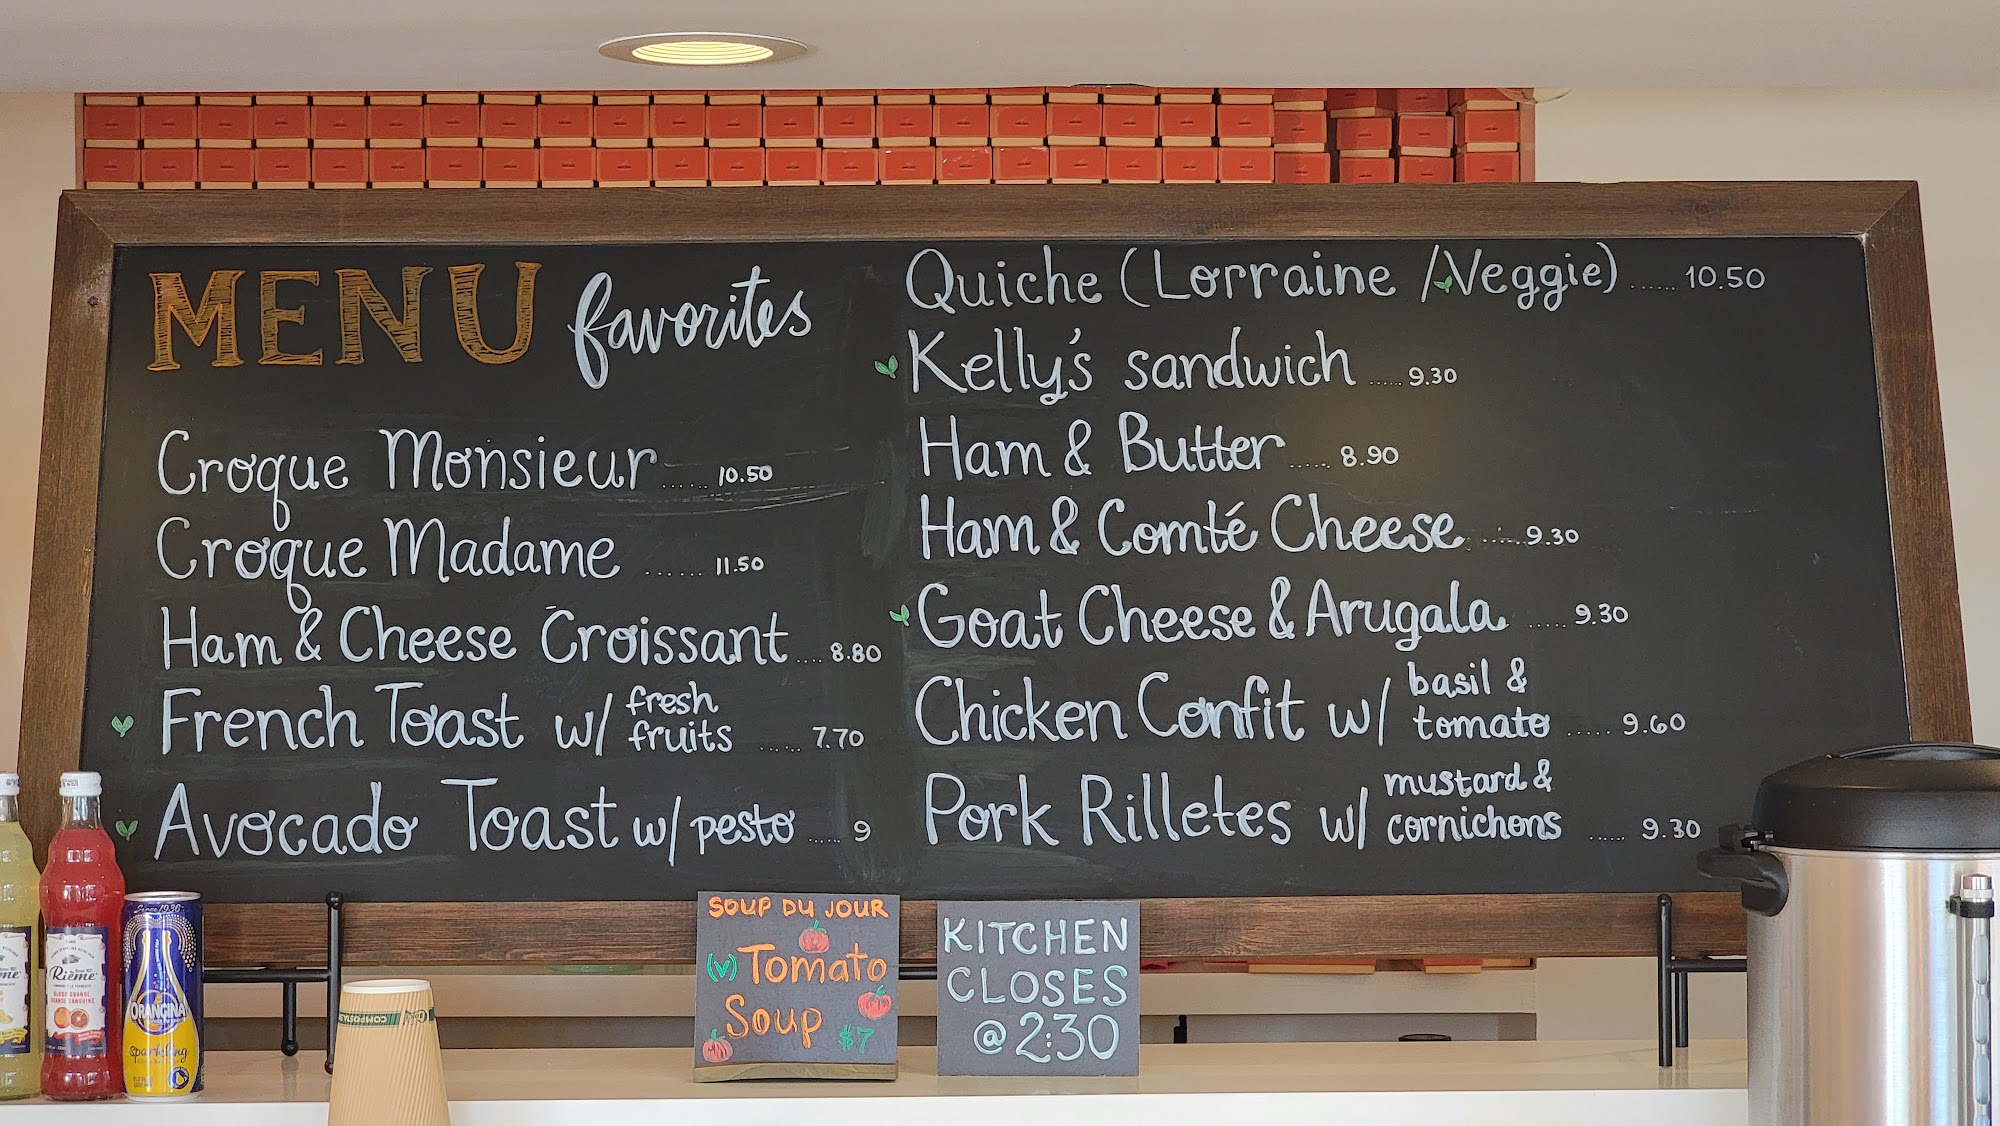 MENU favorites
Croque Monsieur ...... 10.50
Croque Madame ...... 11.50
Ham & Cheese Croissant .... 8.80
French Toast w/ fresh fruits ...... 7.70
Avocado Toast w/ pesto ...... 9
Quiche (Lorraine / Veggie) ...... 10.50
Kelly's sandwich ...... 9.30
Ham & Butter ..... 8.90
Ham & Comté Cheese ..... 9.30
Goat Cheese & Arugala ..... 9.30
Chicken Confit w/ basil & tomato ..... 9.60
Pork Rilletes w/ mustard & cornichons ..... 9.30
SOUP DU JOUR
(V) Tomato
Soup $7
KITCHEN
CLOSES
@ 2:30
Rième
BLOOD ORANGE
ORANGE SANGUINE
Since 1936
ORANGINA
Sparkling